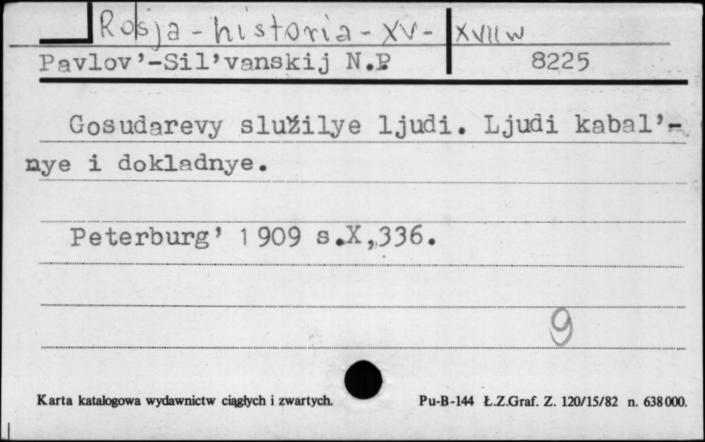 Rosja - historia - XV - XVII w
Pavlov’-Sil’vanskij N.P 8225
Gosudarevy služilye ljudi. Ljudi kabal’-
nye i dokladnye.
Peterburg’ 1909 s.X,336.
9
Karta katalogowa wydawnictw ciągłych i zwartych. Pu-B-144 Ł.Z.Graf. Z. 120/15/82 n. 638000.